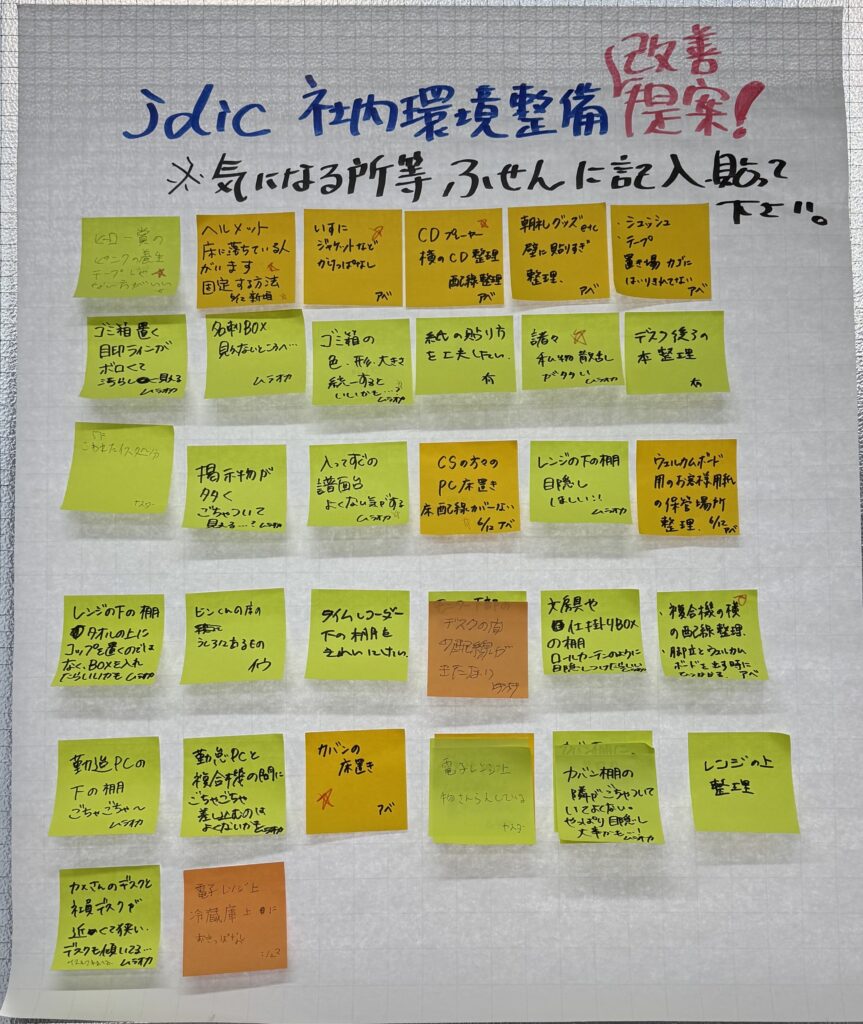 jdic 社内環境整備 改善
提案!
※気になる所等、ふせんに記入貼って
下さい。
ヒーロー賞の
ピンクの養生
テープじゃ
ない方がいい
ヘルメット
床に落ちている人
がいます
固定する方法
いすに
ジャケットなど
かけっぱなし
アベ
CDプレーヤー
横のCD整理
配線整理
アベ
朝礼グッズetc
壁に貼りすぎ
整理.
アベ
・シュッシュ
・テープ
置き場 カゴに
はいりきれてない
ゴミ箱置く
目印ラインが
ボロくて
こちらに見える
ムラオカ
名刺BOX
見えないところへ…
ムラオカ
ゴミ箱の
色・形・大きさ
統一すると
いいかも…?
ムラオカ
紙の貼り方
を工夫したい.
有
諸々
私物散乱し
がタタい
ムラオカ
デスク後ろの
本整理
有
こわれたイス
ヤスダー
掲示物が
タタく
ごちゃついて
見える…?ムラオカ
入ってすぐの
譜面台
よくない気がする
ムラオカ
CSの方々の
PC床置き
床配線カバーない
6/12 アベ
レンジの下の棚
目隠し
ほしい!!
ムラオカ
ウェルカムボード
用のお客様用紙
の保管場所
整理. 6/12
アベ
レンジの下の棚
タオルの上に
コップを置くのでは
なく、BOXを入れ
たらいいかも ムラオカ
ビンくんの席の
うしろにあるもの
イウ
タイムレコーダー
下の棚を
きれいにしたい.
デスクの間
の配線が
出たまり
文房具や
仕掛りBOX
の棚
ロールカーテンのように
目隠しつけたらいい
・複合機の横
の配線整理.
・脚立とウェルカム
ボードを出す時に
ひっかかる. アベ
勤怠PCの
下の棚
ごちゃごちゃ〜
ムラオカ
勤怠PCと
複合機の間に
ごちゃごちゃ
差し込むのは
よくないかも
カバンの
床置き
アベ
電子レンジ上
物さんらんしている
ヤスダー
カバン棚の
隣がごちゃついて
いてよくない。
やっぱり目隠し
大事かも…!
ムラオカ
レンジの上
整理
カメさんのデスクと
社員デスクが
近くて狭い.
デスクも傾いてる…
ムラオカ
電子レンジ上
冷蔵庫上に
おきっぱなし